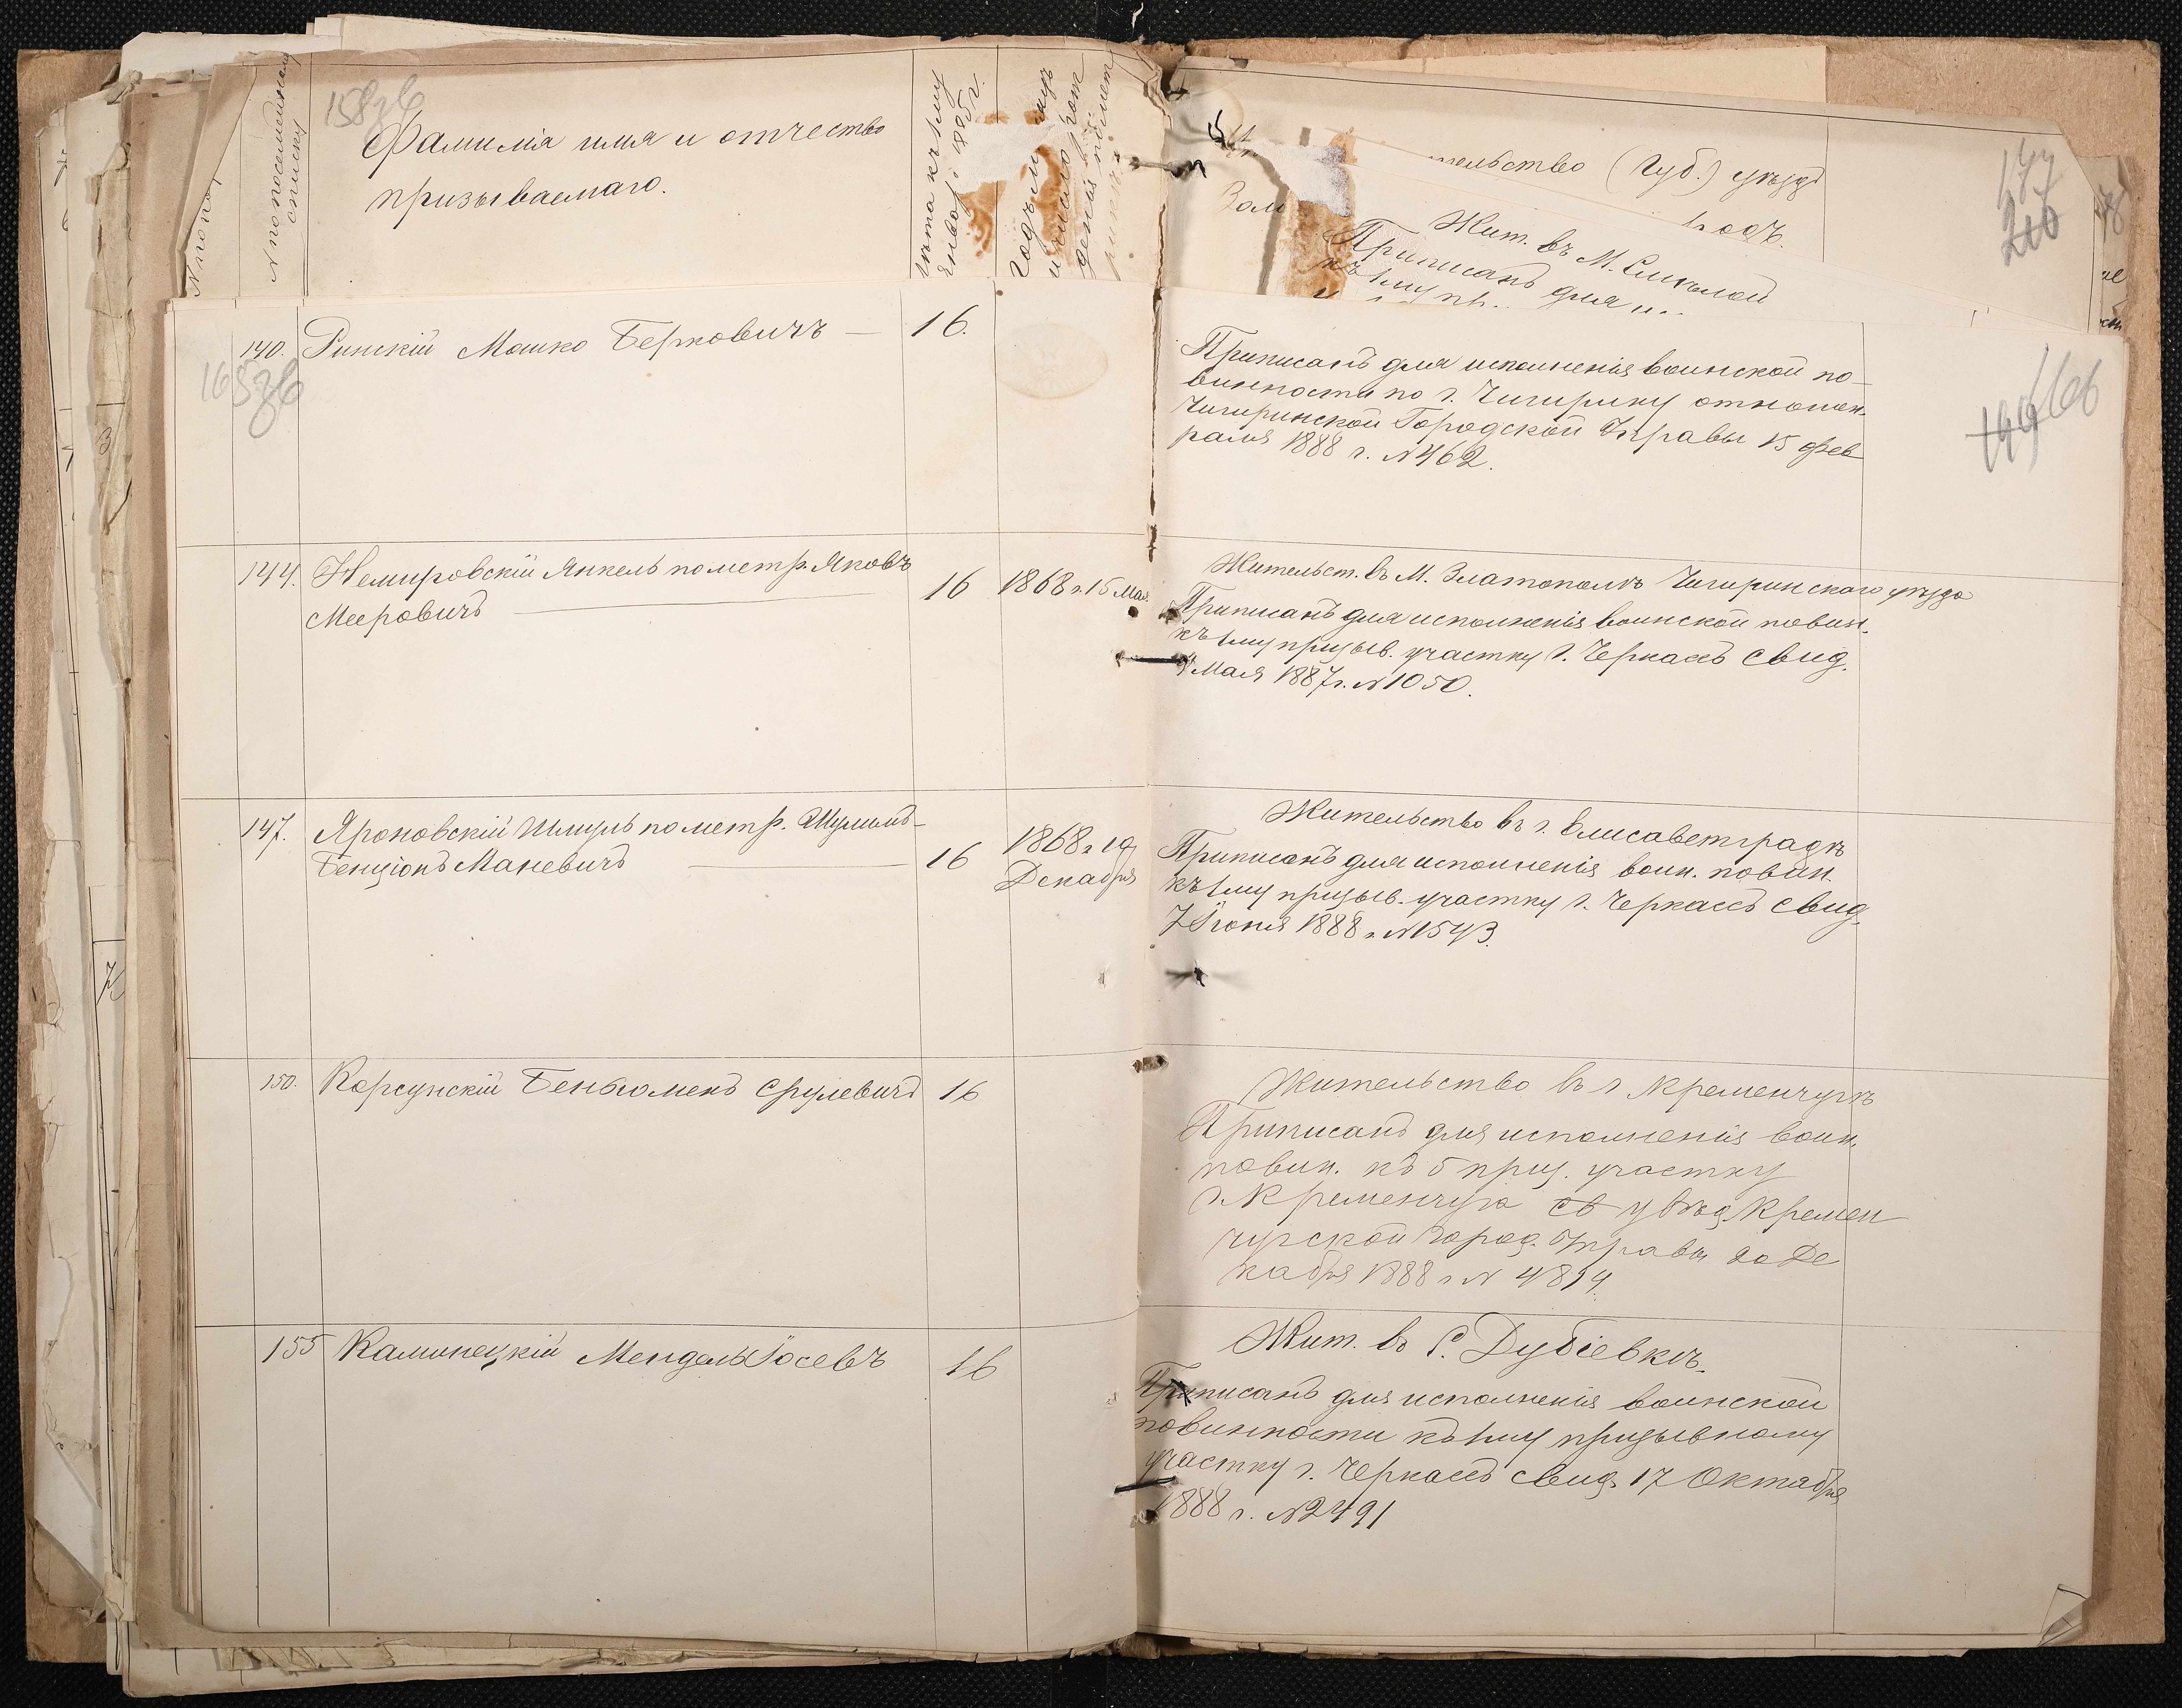 158 зв
№ по посемейному
списку
Фамилія имя и отчество
призываемаго.
лѣта къ 1му
Января 1885 г.
тельство (Губ.) уѣздъ
Жит. въ М.
Приписанъ для
177
216
140. Ринскій Мошко Берковичъ — 16.
165 зв
Приписанъ для исполненія воинской по-
винности по г. Чигирину отношен.
Чигиринской Городской Управы 15 фев
раля 1888 г. № 462.
199 166
144. Немировскій Янкель по метр. Яковъ
Мееровичъ — 16 1868 г. 15 мая
Жительст. въ М. Златополѣ Чигиринскаго уѣзда
Приписанъ для исполненія воинской повин.
къ 1му призыв. участку г. Черкассъ свид.
Мая 1887 г. № 1050.
147. Яроновскій Шмуль по метр. Шулимъ-
Бенціонъ Маневичъ — 16 1868 г. 19
Декабря
Жительство въ г. Елисаветградѣ
Приписанъ для исполненія воин. повин.
къ 1му призыв. участку г. Черкассъ свид.
7 Іюня 1888 г. № 1543.
150. Корсунскій Беньюменъ Срулевичъ 16
Жительство въ г Кременчугѣ
Приписанъ для исполненія воин.
повин. къ 5 приз. участку
г. Кременчуга св увѣд. Кремен
чугской Город. Управы 20 Де
кабря 1888 г № 4814.
155 Каминецкій Мендель Іосевъ 16
Жит. въ С. Дубіевкѣ.
Приписанъ для исполненія воинской
повинности къ 1му призывному
участку г. Черкассъ свид. 17 Октября
1888 г. № 2491